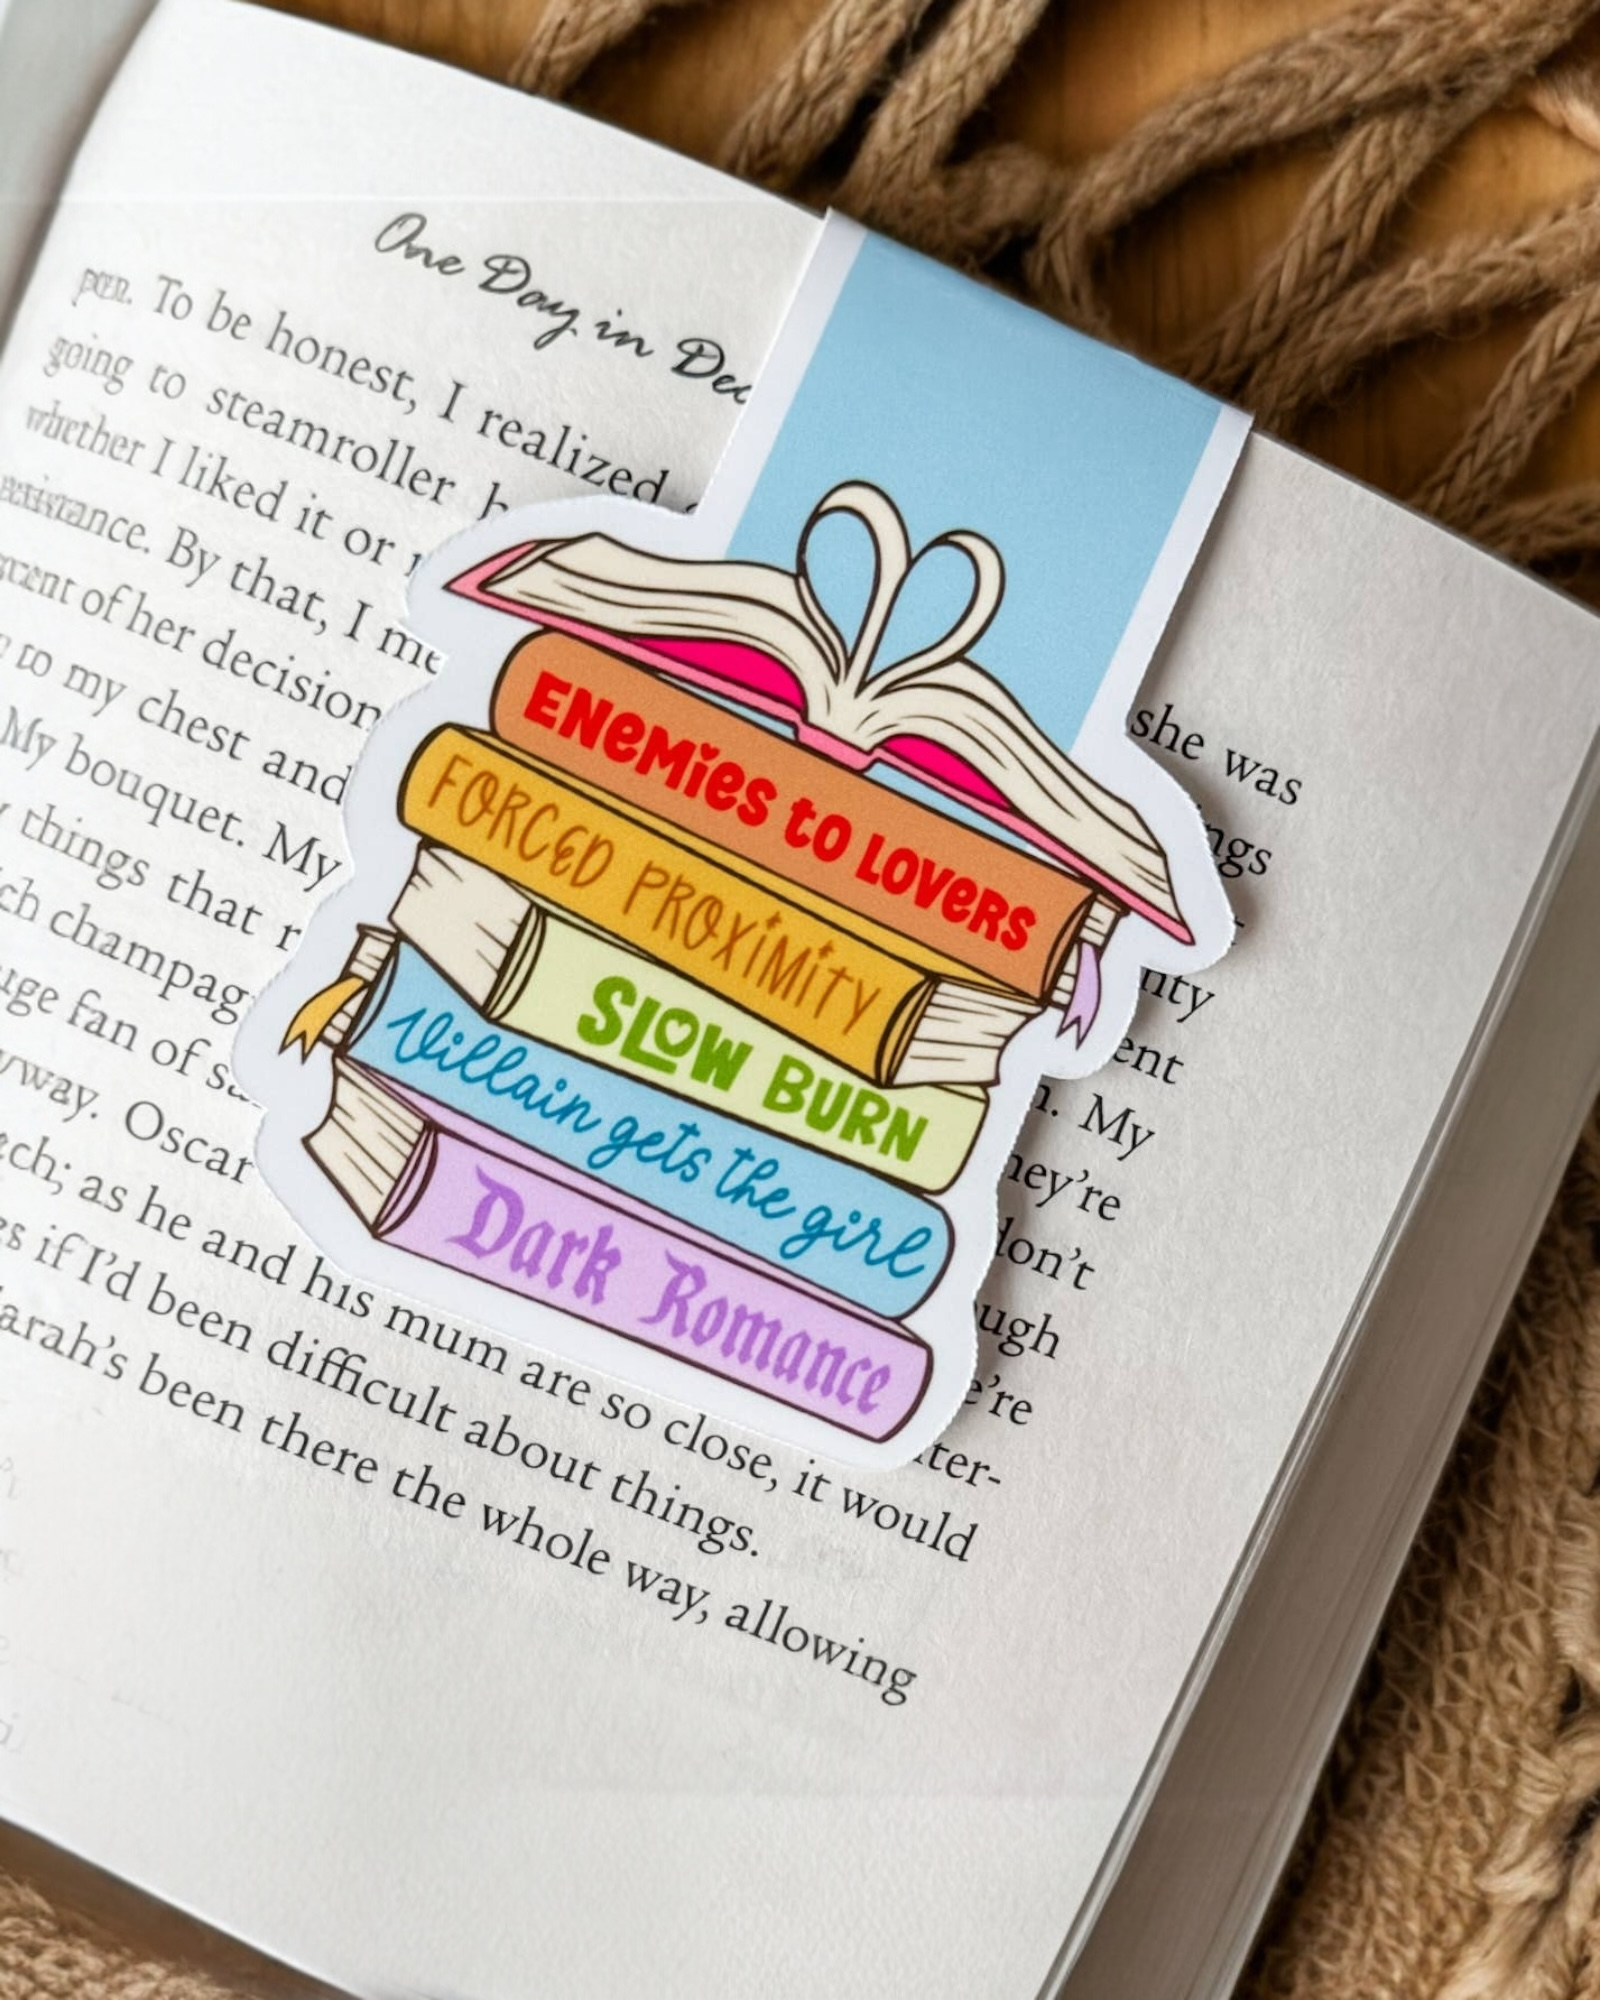 One Day in Dec
To be honest, I realized
going to steamroller h
whether I liked it or
By that, I me
of her decision
to my chest and
My bouquet. My
things that r
ch champag
uge fan of sa
yway. Oscar
ech; as he and his mum are so close, it would
es if I'd been difficult about things.
arah's been there the whole way, allowing
she was
ngs
nty
ent
n. My
hey're
don't
ugh
e're
ter-
ENEMIES TO LOVERS
FORCED PROXIMITY
SLOW BURN
Villain gets the girl
Dark Romance